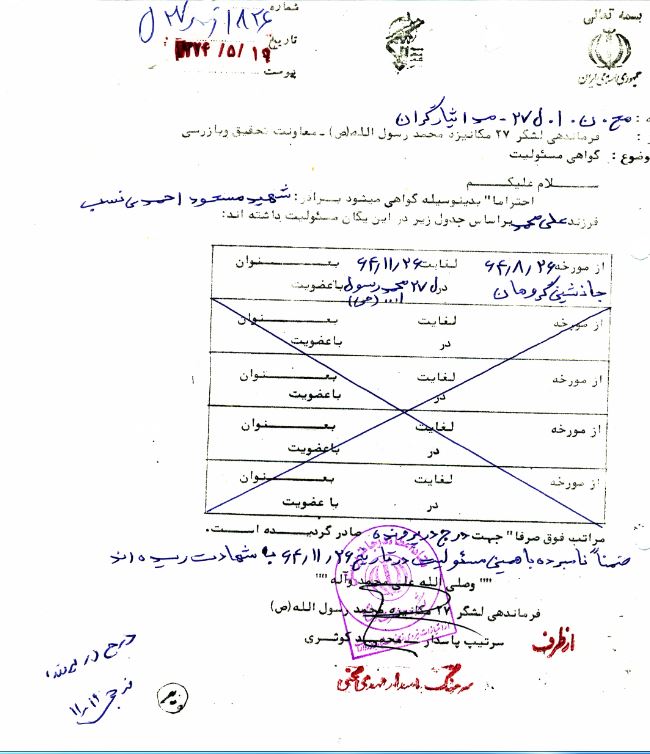 بسمه تعالی
جمهوری اسلامی ایران
شماره
تاریخ ۱۳۷۴/۵/۱۹
پیوست
فرماندهی لشگر ۲۷ مکانیزه محمد رسول الله(ص) ـ معاونت تحقیق وبازرسی
گواهی مسئولیت
سلام علیکم
احتراما" بدینوسیله گواهی میشود برادر: شهید مسعود احمدی نسب
فرزند علی محمد براساس جدول زیر در این یگان مسئولیت داشته اند:
از مورخه ۶۴/۸/۲۶ لغایت ۶۴/۱۱/۲۶ بعنوان
جانشین گروهان در ل ۲۷ محمد رسول الله (ص) باعضویت
از مورخه لغایت بعنوان
در باعضویت
از مورخه لغایت بعنوان
در باعضویت
از مورخه لغایت بعنوان
در باعضویت
از مورخه لغایت بعنوان
در با عضویت
مراتب فوق صرفا" جهت درج در پرونده صادر گردیده است.
ضمناً نامبرده با همین مسئولیت در تاریخ ۶۴/۱۱/۲۶ به شهادت رسیده اند
"" وصلی الله علی محمد وآله ""
فرماندهی لشگر ۲۷ مکانیزه محمد رسول الله(ص)
از طرف سرتیپ پاسدار ـ محمد کوثری
درج در پرونده